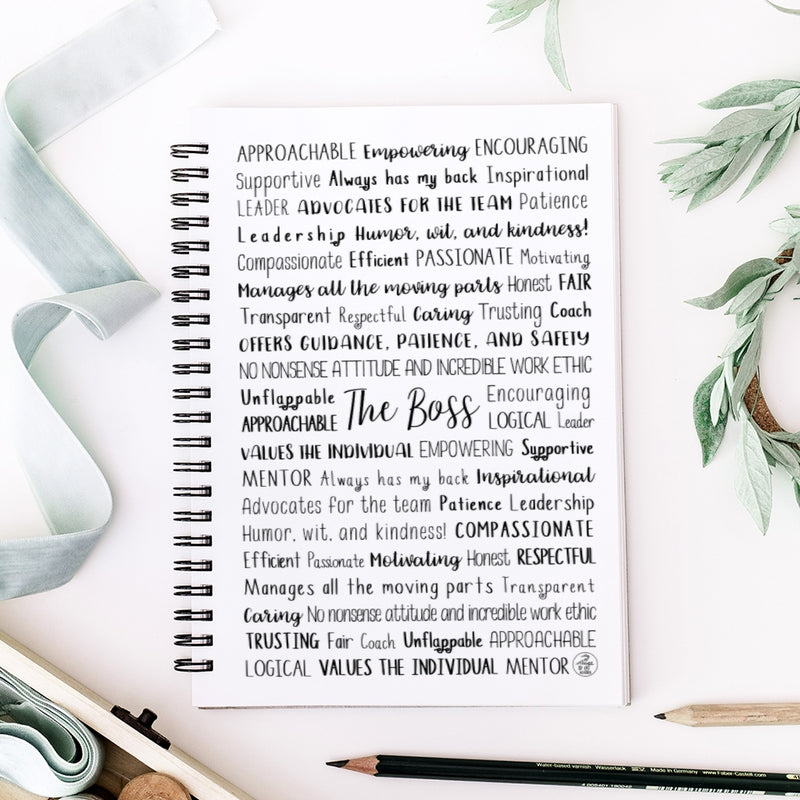 APPROACHABLE Empowering ENCOURAGING
Supportive Always has my back Inspirational
LEADER ADVOCATES FOR THE TEAM Patience
Leadership Humor, wit, and kindness!
Compassionate Efficient PASSIONATE Motivating
Manages all the moving parts Honest FAIR
Transparent Respectful Caring Trusting Coach
OFFERS GUIDANCE, PATIENCE, AND SAFETY
NO NONSENSE ATTITUDE AND INCREDIBLE WORK ETHIC
Unflappable The Boss Encouraging
APPROACHABLE LOGICAL Leader
VALUES THE INDIVIDUAL EMPOWERING Supportive
MENTOR Always has my back Inspirational
Advocates for the team Patience Leadership
Humor, wit, and kindness! COMPASSIONATE
Efficient Passionate Motivating Honest RESPECTFUL
Manages all the moving parts Transparent
Caring No nonsense attitude and incredible work ethic
TRUSTING Fair Coach Unflappable APPROACHABLE
LOGICAL VALUES THE INDIVIDUAL MENTOR
Water-based varnish Wasserlack Made in Germany www.Faber-Castell.com